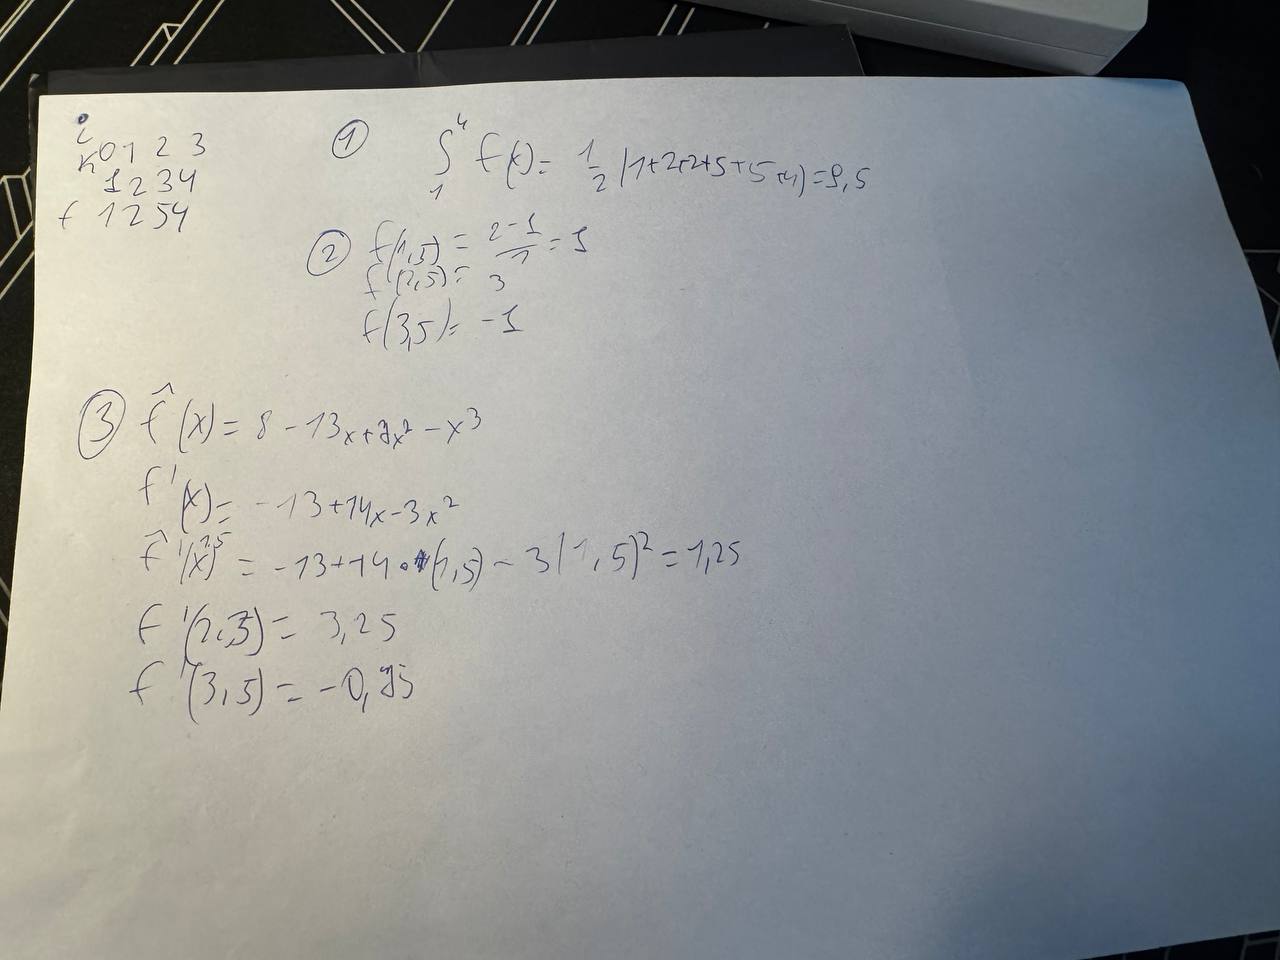 i 0 1 2 3
x 1 2 3 4
f 1 2 5 4
① ∫₁⁴ f(x) = 1/2 (1+2+2+5+5+4) = 9,5
② f(1,5) = (2-1)/1 = 1
f(2,5) = 3
f(3,5) = -1
③ f̂(x) = 8 - 13x + 7x² - x³
f'(x) = -13 + 14x - 3x²
f̂'(x) 1,5 = -13 + 14 · (1,5) - 3(1,5)² = 1,25
f'(2,5) = 3,25
f'(3,5) = -0,75